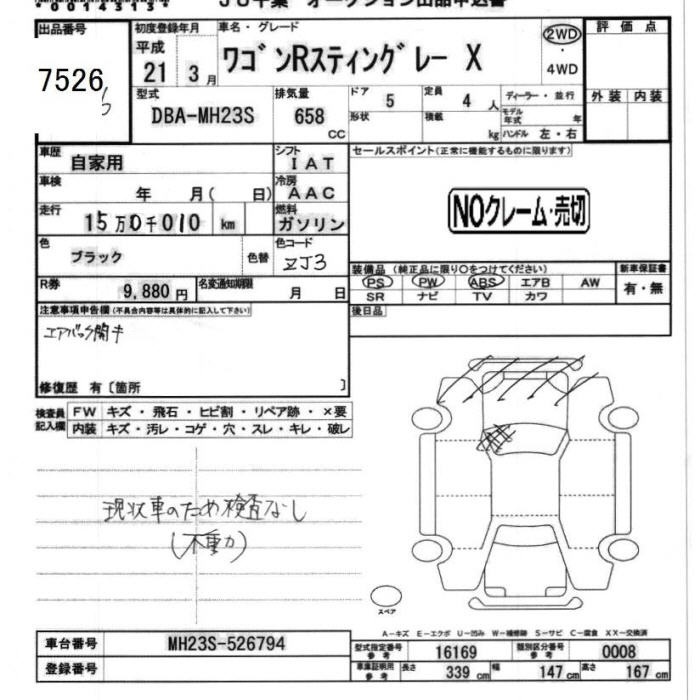 JU千葉 オークション出品申込書
出品番号 初度登録年月 車名・グレード 評価点
平成 21年 3月 ワゴンRスティングレー X 2WD・4WD
7526
型式 排気量 ドア 5 定員 4人 ディーラー・並行 外装 内装
DBA-MH23S 658 CC 形状 積載 kg モデル年式 年 ハンドル 左・右
車歴 自家用 シフト IAT セールスポイント(正常に機能するものに限ります)
車検 年 月( 日) 冷房 AAC
走行 15万0千010 km 燃料 ガソリン NOクレーム・売切
色 ブラック 色替 色コード ZJ3
装備品(純正品に限り○をつけてください) 新車保証書
PS PW ABS エアB AW 有・無
SR ナビ TV カワ
R券 9,880円 名変通知期限 月 日
注意事項申告欄(不具合内容等は具体的に記入して下さい) 後日品
エアバック開キ
修復歴 有〔箇所 〕
検査員記入欄 FW キズ・飛石・ヒビ割・リペア跡・×要
内装 キズ・汚レ・コゲ・穴・スレ・キレ・破レ
現状車のため検査なし
(不動カ)
スペア
A-キズ E-エクボ U-凹み W-補修跡 S-サビ C-腐食 XX-交換済
車台番号 MH23S-526794 型式指定番号 参考 16169 類別区分番号 参考 0008
登録番号 車庫証明用 参考 長さ 339cm 幅 147cm 高さ 167cm